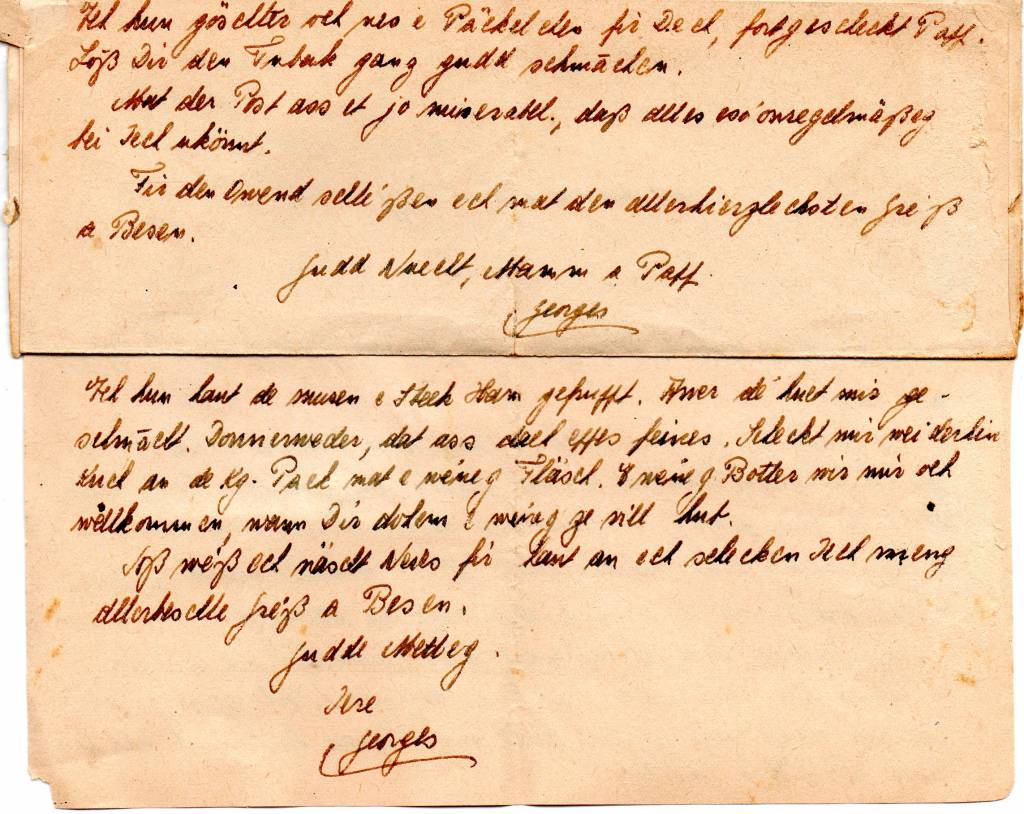 Ech hun gëschter och nës e Päckelchen fir Dech, fortgescheckt Papp.
Löß Dir den Tubak ganz gudd schmächen.
Mat der Post ass et jo miserabel, daß alles esó onregelmäßeg
bei Iech ukënnt.
Fir den Owend schléißen ech mat den allerhierzlechsten Gréiß
a Besen.
Gudd Nuecht, Mamm a Papp
Georges
Ech hun haut de muren e Steck Ham gepufft. Awer dé huet mir ge-
schmächt. Donnerweder, dat ass dach eppes feines. Scheckt mir weiderhin
Iech an de Kg. Pack mat e wéineg Fläsch. E wéineg Botter wir mir och
wëllkommen, wann Dir dohem e wéineg ze vill hut.
Soß wéß ech näischt Neies fir haut an ech schecken Iech meng
allerbeschte Gréiß a Besen.
Gudde Metteg.
Iere
Georges